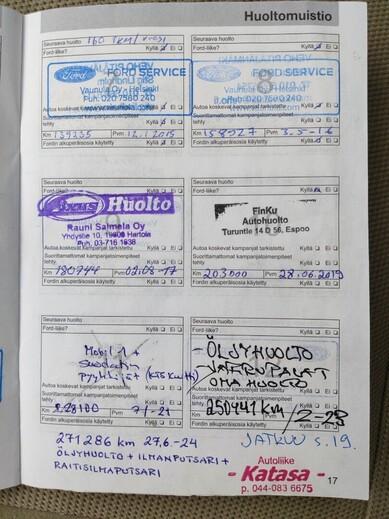 Huoltomuistio
Seuraava huolto 160 TKM/
Ford-liike? Kyllä Ei
Ford FORD SERVICE
Vaunula Oy - Helsinki
Puh. 020 7560 240
Autoa koskevat kampanjat tarkistettu Kyllä Ei
Suorittamattomat kampanjatoimenpiteet
tehty Kyllä Ei
Km 139235 Pvm 12.1.2015
Fordin alkuperäisosia käytetty Kyllä Ei
Seuraava huolto
Ford-liike? Kyllä Ei
8
Ford FORD SERVICE
Autoa koskevat kampanjat tarkistettu Kyllä Ei
Suorittamattomat kampanjatoimenpiteet
tehty Kyllä Ei
Km 158927 Pvm 3.5-16
Fordin alkuperäisosia käytetty Kyllä Ei
Seuraava huolto
Huolto
Rauni Salmela Oy
Yhdystie 10, 19600 Hartola
Puh. 03-716 1938
Autoa koskevat kampanjat tarkistettu Kyllä Ei
Suorittamattomat kampanjatoimenpiteet
tehty Kyllä Ei
Km 180744 Pvm 02.08-17
Fordin alkuperäisosia käytetty Kyllä Ei
Seuraava huolto
Ford-liike? Kyllä Ei
FinKu
Autohuolto
Turuntie 14 D 56, Espoo
Autoa koskevat kampanjat tarkistettu Kyllä Ei
Suorittamattomat kampanjatoimenpiteet
tehty Kyllä Ei
Km 203000 Pvm 28.06.2019
Fordin alkuperäisosia käytetty Kyllä Ei
Seuraava huolto
Ford-liike? Kyllä Ei
Mobil 1 +
Suodatin
Autoa koskevat kampanjat tarkistettu Kyllä Ei
Suorittamattomat kampanjatoimenpiteet
tehty Kyllä Ei
Pvm 7/-21
Fordin alkuperäisosia käytetty Kyllä Ei
Seuraava huolto
Ford-liike? Kyllä Ei
- ÖLJYHUOLTO
- JARRUPALAT
OMA HUOLTO
250441 km
271286 km 27.6.-24
ÖLJYHUOLTO + ILMANPUTSARI +
RAITISILMAPUTSARI
JATKUU s.19.
Autoliike
- Katasa -
p. 044-083 6675
17